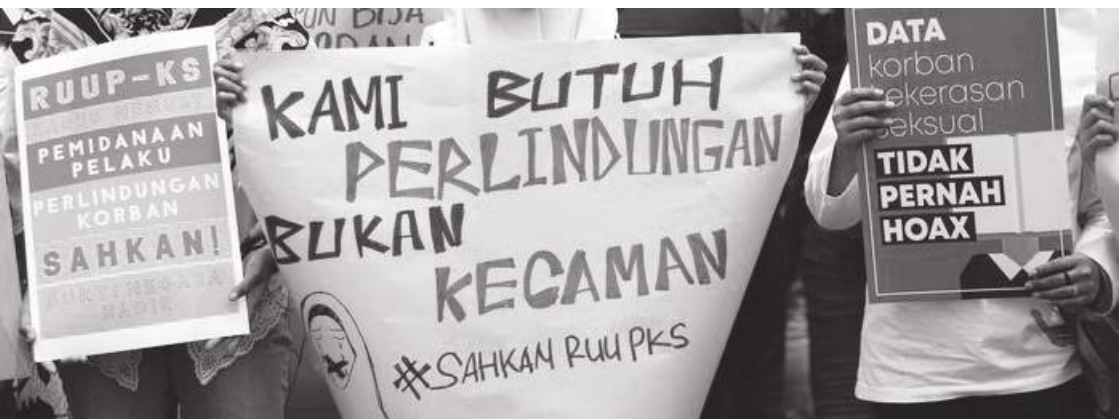 RUUP-KS
PEMIDANAAN
PELAKU
PERLINDUNGAN
KORBAN
SAHKAN!
BUKTI NEGARA
HADIR
BISA
KAMI BUTUH
PERLINDUNGAN
BUKAN
KECAMAN
#SAHKAN RUU PKS
DATA
korban
kekerasan
seksual
TIDAK
PERNAH
HOAX